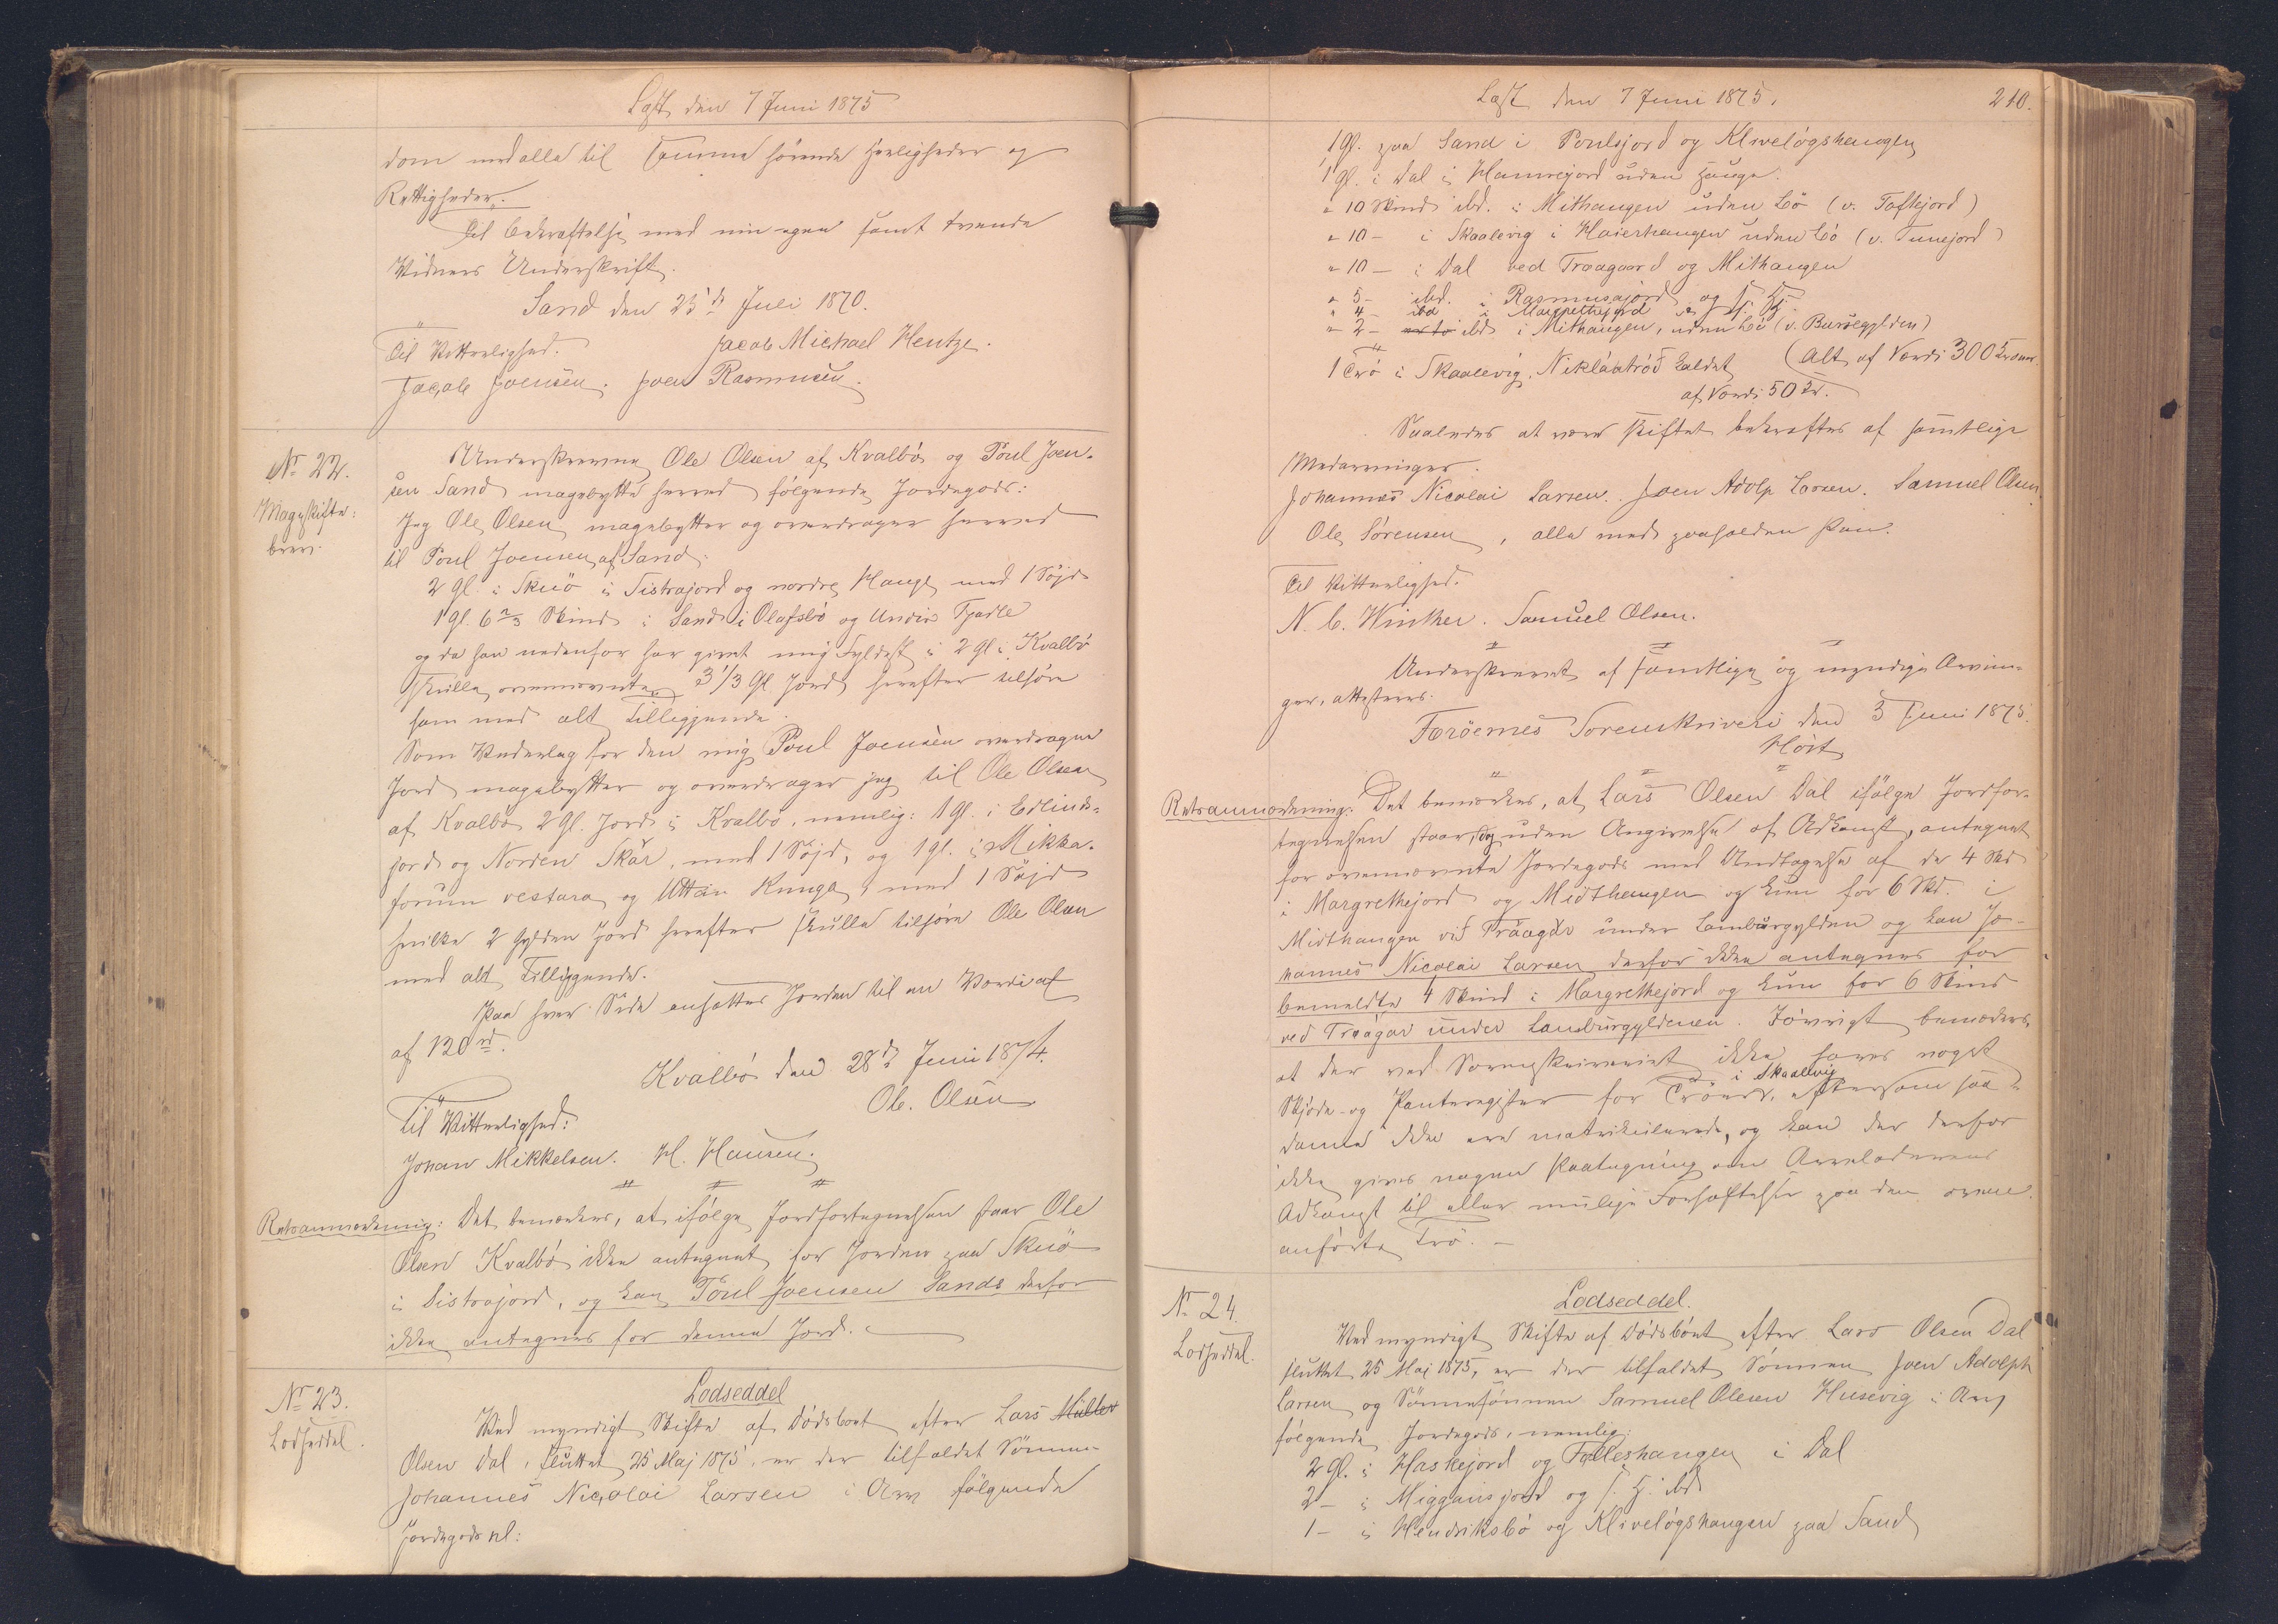 Læst den 7 Juni 1875
dom med alle til samme hørende Herligheder og
Rettigheder.
Til Bekræftelse med min egen samt tvende
Vidners Underskrift.
Sand den 25de Juli 1870.
Til Vitterlighed. Jacob Michael Hentze.
Jacob Joensen. Joen Rasmusen.
No 22.
Mageskifte-
brev.
Underskrevne Ole Olsen af Kvalbø og Poul Joen-
sen Sand magebytte herved følgende Jordegods:
Jeg Ole Olsen magebytter og overdrager herved
til Poul Joensen af Sand:
2 Gl. i Skuø i Sistrajord og nordre Hauge med 1 Søjd
1 Gl. 6 2/3 Skind i Sand i Olafsbø og Undir Fjadle
og da han nedenfor har givet mig Fyldest i 2 Gl i Kvalbø
skulle ovennævnte 3 1/3 Gl. Jord herefter tilhøre
ham med alt Tilliggende.
Som Vederlag for den mig Poul Joensen overdragne
Jord magebytter og overdrager jeg til Ole Olsen
af Kvalbø 2 Gl. Jord i Kvalbø, nemlig: 1 Gl. i Edlinds-
jord og Norden Skár, med 1 Søjd, og 1 Gl. i Mikka-
forum vestara og Uttan Kunga, med 1 Søjd
hvilke 2 Gylden Jord herefter skulle tilhøre Ole Olsen
med alt Tilliggende.
Paa hver Side ansættes Jorden til en Værdi af
af 120 rd.
Kvalbø den 28de Juni 1874.
Ole. Olsen
Til Vitterlighed:
Johan Mikkelsen. H. Hansen.
Retsanmærkning: Det bemærkes, at ifølge Jordfortegnelsen staar Ole
Olsen Kvalbø ikke antegnet for Jorden paa Skuø
i Sistrajord, og kan Poul Joensen Sands derfor
ikke antegnes for denne Jord.
No 23.
Lodseddel.
Lodseddel
Ved myndigt Skifte af Dødsboet efter Lars Müller
Olsen Dal, sluttet 25 Maj 1875, er der tilfaldet Sønnen
Johannes Nicolai Larsen i Arv følgende
Jordegods nl:
Læst den 7 Juni 1875. 210.
1 Gl. paa Sand i Poulsjord og Kliveløgshaugen
1 Gl. i Dal i Hamrejord uden Hauge.
" 10 Skind ibd. i Mithaugen uden Bø (v. Toftejord)
" 10 - i Skaalevig i Haierhaugen uden Bø (v. Tunejord)
" 10 - i Dal ved Traagaard og Mithaugen
" 5 - ibd. i Rasmusajord og s. H.
" 4 - ibd i Margrethejord og s. H.
" 2 - ibd i Mithaugen, uden Bø (v. Barsegylden)
(Alt af Værdi 300 Kroner.
1 Trø i Skaalevig, Niklåatrød kaldet
af Værdi 50 Kr.
Saaledes at være skiftet bekræftes af samtlige
Medarvinger.
Johannes Nicolai Larsen. Joen Adolp Larsen. Samuel Olsen.
Ole Sørensen, alle med paaholden Pen.
Til Vitterlighed.
N. C. Winther. Samuel Olsen.
Underskrevet af samtlige og myndige Arvin-
ger, attesteres.
Færøernes Sorenskriveri den 3 Juni 1875.
Høst
Retsanmærkning: Det bemærkes, at Lars Olsen Dal ifølge Jordfor-
tegnelsen staar, dog uden Angivelse af Adkomst, antegnet
for ovennævnte Jordegods med Undtagelse af de 4 Skd
i Margrethejord og Midthaugen og kun for 6 Skd. i
Midthaugen vid Tráagár under Lamburgylden og kan Jo-
hannes Nicolai Larsen derfor ikke antegnes for
bemeldte 4 Skind i Margrethejord og kun for 6 Skind
ved Traágar under Lamburgyldenen. Iøvrigt bemærkes,
at der ved Sorenskriveriet ikke haves noget
Skjøde- og Panteregister for Trøer i Skaalevig, eftersom saa-
danne ikke ere matrikulerede, og kan der derfor
ikke gives nogen Paategning om Arveladerens
Adkomst til eller mulige Forhæftelser paa den oven-
anførte Trø. -
No 24.
Lodseddel.
Lodseddel.
Ved myndigt Skifte af Dødsboet efter Lars Olsen Dal
sluttet 25 Maj 1875, er der tilfaldet Sønnen Joen Adolph
Larsen og Sønnesønnen Samuel Olsen Husevig i Arv
følgende Jordegods, nemlig:
2 Gl. i Haskejord og Folleshaugen i Dal
2 - i Miggansjord og s. H. ibd
1 - i Hendriksbø og Kliveløgshaugen paa Sand